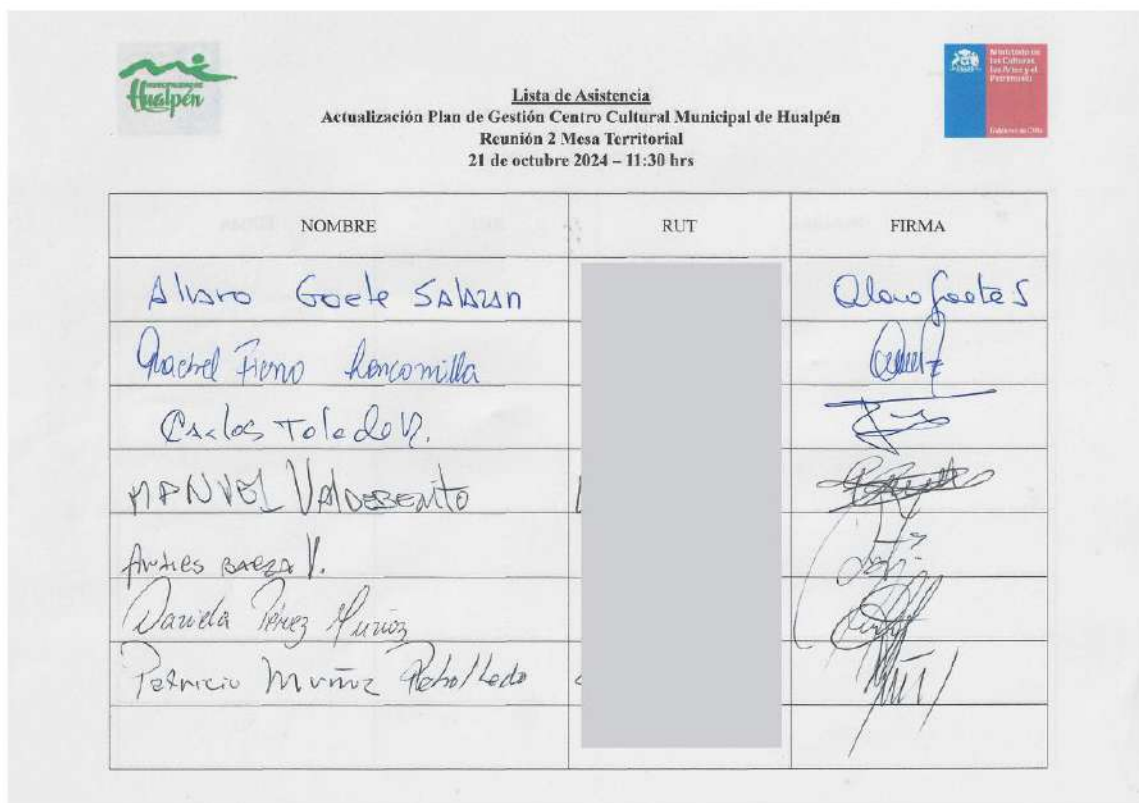 Hualpén
Ministerio de
las Culturas,
las Artes y el
Patrimonio
Gobierno de Chile
Lista de Asistencia
Actualización Plan de Gestión Centro Cultural Municipal de Hualpén
Reunión 2 Mesa Territorial
21 de octubre 2024 – 11:30 hrs
NOMBRE RUT FIRMA
Alvaro Goete Salazan Alvaro Goete S
Fierro Loncomilla
Carlos Toledo V.
MANUEL VALDEBENITO
Andres Baeza V.
Daniela Pérez Muñoz
Patricio Muñoz Rebolledo